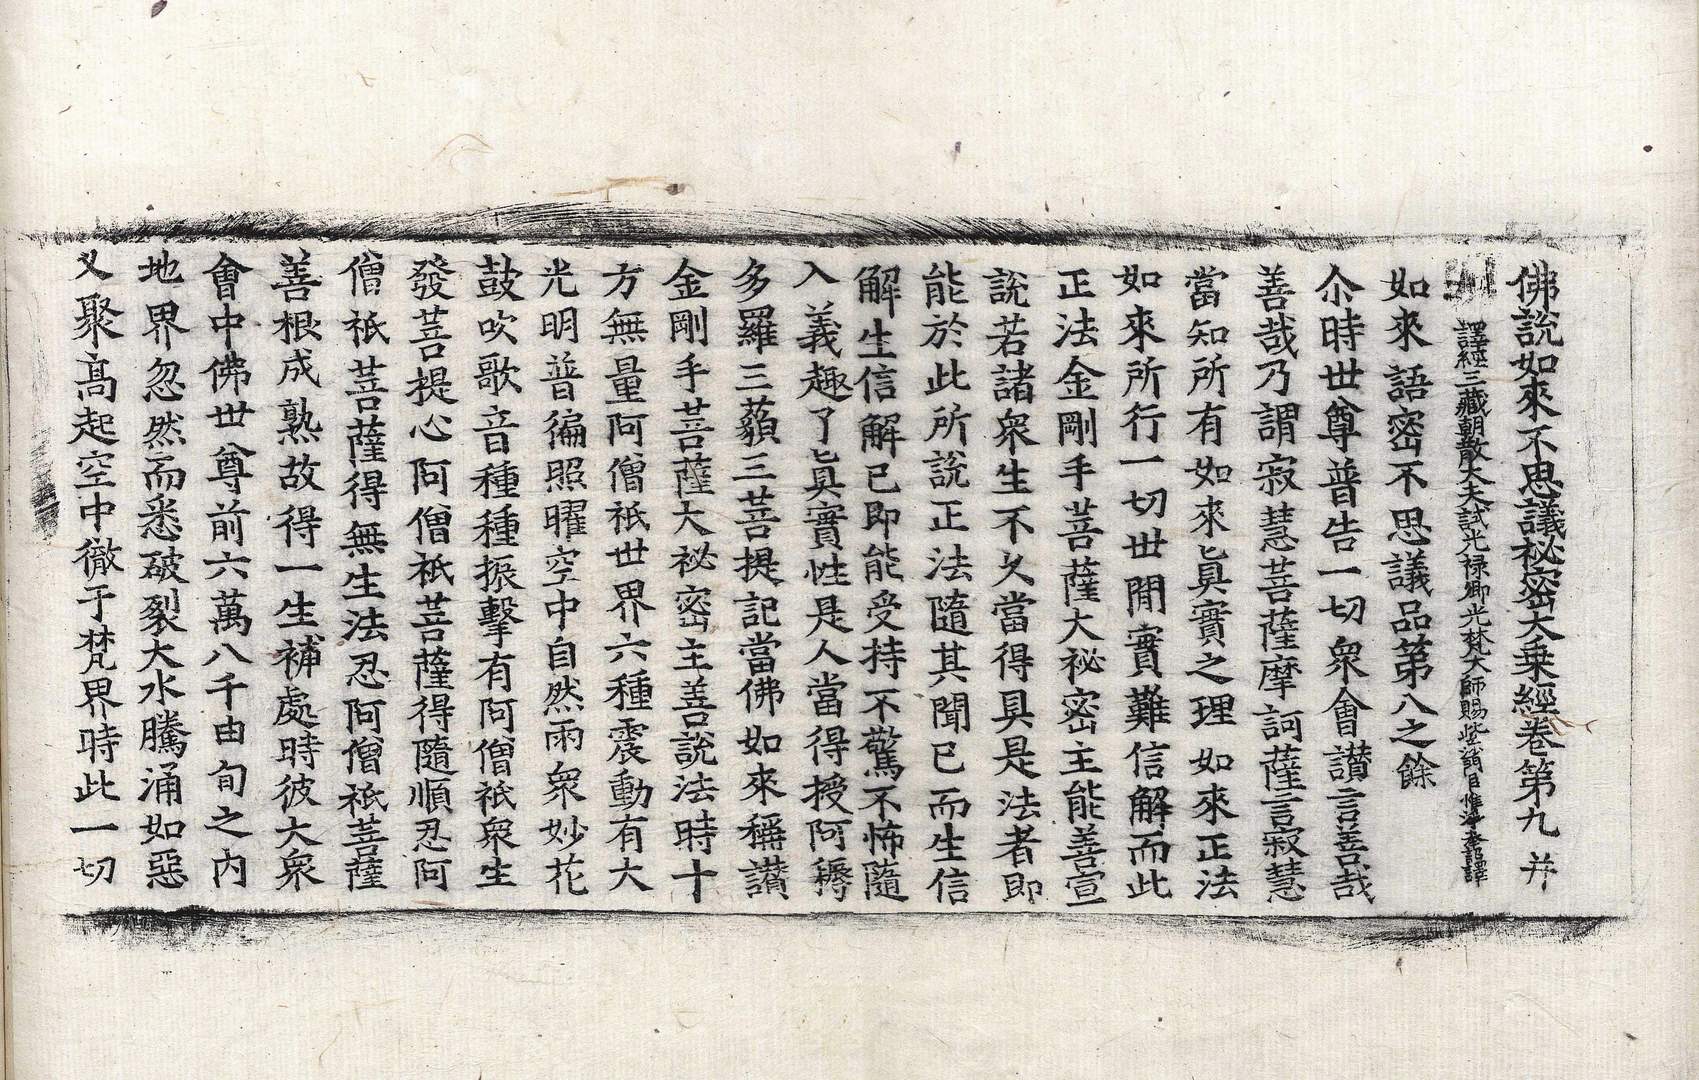 佛說如來不思議祕密大乗經卷第九 并
譯經三藏朝散大夫試光禄卿光梵大師賜紫沙門臣惟淨奉詔譯
如來語密不思議品第八之餘
尒時世尊普告一切衆會讃言善哉
善哉乃謂寂慧菩薩摩訶薩言寂慧
當知所有如來眞實之理如來正法
如來所行一切世閒實難信解而此
正法金剛手菩薩大祕密主能善宣
說若諸衆生不久當得具是法者即
能於此所說正法隨其聞已而生信
解生信解已即能受持不驚不怖隨
入義趣了眞實性是人當得授阿耨
多羅三藐三菩提記當佛如來稱讃
金剛手菩薩大祕密主善說法時十
方無量阿僧祇世界六種震動有大
光明普徧照曜空中自然雨衆妙花
鼓吹歌音種種振擊有阿僧祇衆生
發菩提心阿僧祇菩薩得隨順忍阿
僧祇菩薩得無生法忍阿僧祇菩薩
善根成熟故得一生補處時彼大衆
會中佛世尊前六萬八千由旬之內
地界忽然而悉破裂大水騰涌如惡
叉聚高起空中徹于梵界時此一切